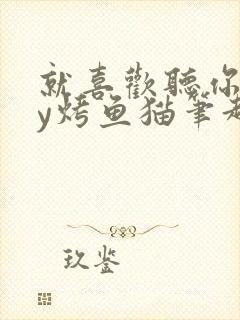 就喜歡聽你
y烤鱼猫筆趣
玖鉴